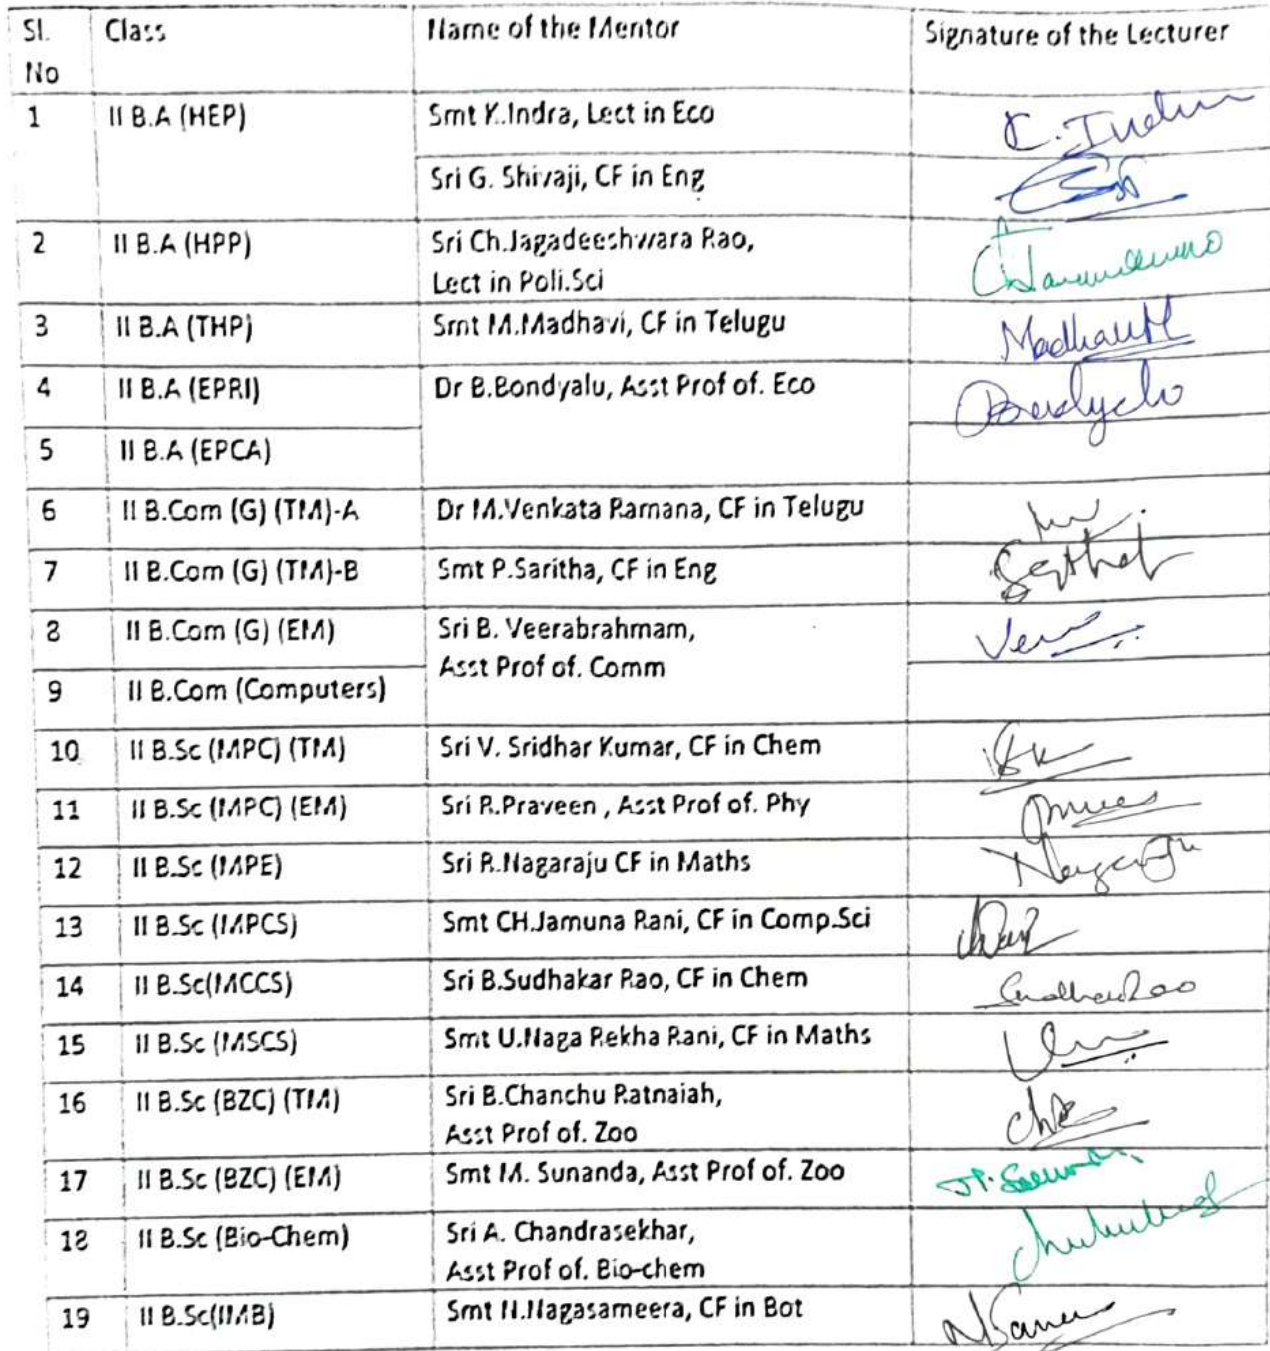 Sl. No Class Name of the Mentor Signature of the Lecturer
1 II B.A (HEP) Smt K.Indra, Lect in Eco K. Indra
Sri G. Shivaji, CF in Eng
2 II B.A (HPP) Sri Ch.Jagadeeshwara Rao,
Lect in Poli.Sci
3 II B.A (THP) Smt M.Madhavi, CF in Telugu Madhavi M
4 II B.A (EPRI) Dr B.Bondyalu, Asst Prof of. Eco
5 II B.A (EPCA)
6 II B.Com (G) (TM)-A Dr M.Venkata Ramana, CF in Telugu
7 II B.Com (G) (TM)-B Smt P.Saritha, CF in Eng
8 II B.Com (G) (EM) Sri B. Veerabrahmam,
Asst Prof of. Comm
9 II B.Com (Computers)
10 II B.Sc (MPC) (TM) Sri V. Sridhar Kumar, CF in Chem
11 II B.Sc (MPC) (EM) Sri R.Praveen , Asst Prof of. Phy
12 II B.Sc (MPE) Sri R.Nagaraju CF in Maths Nagaraju
13 II B.Sc (MPCS) Smt CH.Jamuna Rani, CF in Comp.Sci
14 II B.Sc(MCCS) Sri B.Sudhakar Rao, CF in Chem SudhakarRao
15 II B.Sc (MSCS) Smt U.Naga Rekha Rani, CF in Maths
16 II B.Sc (BZC) (TM) Sri B.Chanchu Ratnaiah,
Asst Prof of. Zoo
17 II B.Sc (BZC) (EM) Smt M. Sunanda, Asst Prof of. Zoo
18 II B.Sc (Bio-Chem) Sri A. Chandrasekhar,
Asst Prof of. Bio-chem
19 II B.Sc(IMB) Smt N.Nagasameera, CF in Bot